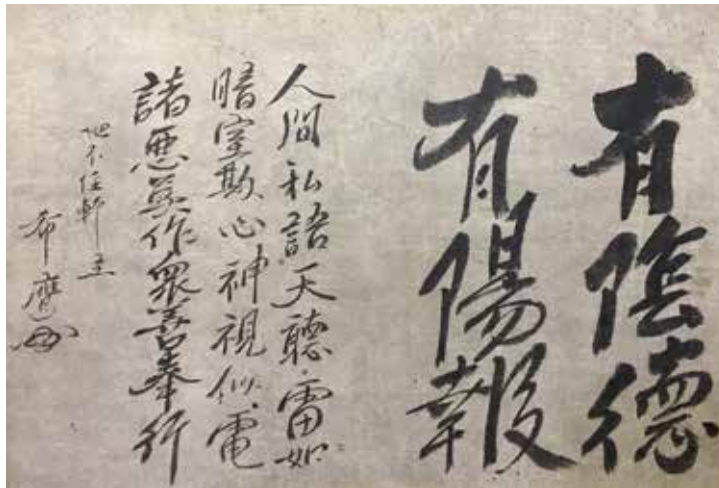 有陰德
有陽報
人間私語天聽雷如
暗室欺心神視似電
諸悪莫作衆善奉行
不住軒主
希膺